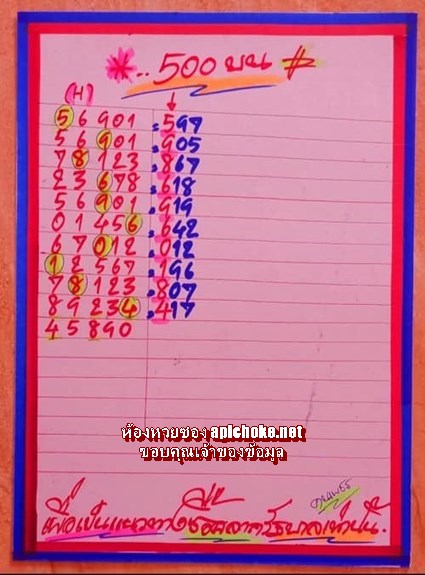 *..500 บน #
(H)
56901 . 597
56901 . 905
78123 . 867
23678 . 618
56901 . 919
01456 . 642
67012 . 012
12567 . 196
78123 . 807
89234 . 417
45890
ห้องหวยซอง apichoke.net
ขอบคุณเจ้าของข้อมูล